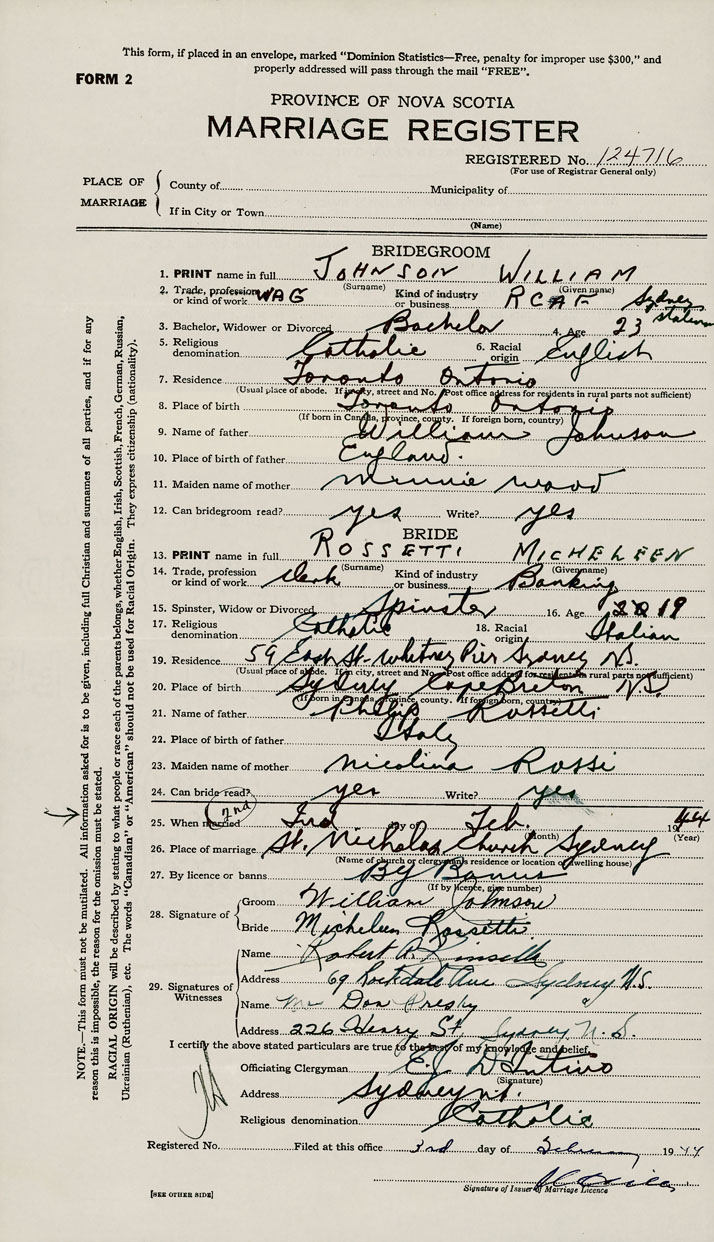 This form, if placed in an envelope, marked "Dominion Statistics—Free, penalty for improper use $300," and
properly addressed will pass through the mail "FREE".
FORM 2
PROVINCE OF NOVA SCOTIA
MARRIAGE REGISTER
REGISTERED No. 124716
(For use of Registrar General only)
PLACE OF MARRIAGE
County of
Municipality of
If in City or Town
(Name)
BRIDEGROOM
1. PRINT name in full JOHNSON WILLIAM
(Surname) (Given name)
2. Trade, profession or kind of work WAG Kind of industry or business RCAF Sydney station
3. Bachelor, Widower or Divorced Bachelor 4. Age 23
5. Religious denomination Catholic 6. Racial origin English
7. Residence Toronto Ontario
(Usual place of abode. If in city, street and No. Post office address for residents in rural parts not sufficient)
8. Place of birth Toronto Ontario
(If born in Canada, province, county. If foreign born, country)
9. Name of father William Johnson
10. Place of birth of father England.
11. Maiden name of mother Minnie Wood
12. Can bridegroom read? yes Write? yes
BRIDE
13. PRINT name in full ROSSETTI MICHELEEN
(Surname) (Given name)
14. Trade, profession or kind of work clerk Kind of industry or business Banking
15. Spinster, Widow or Divorced Spinster 16. Age 19
17. Religious denomination Catholic 18. Racial origin Italian
19. Residence 59 St. Whitney Pier Sydney N.S.
(Usual place of abode. If in city, street and No. Post office address for residents in rural parts not sufficient)
20. Place of birth Sydney Cape Breton N.S.
(If born in Canada, province, county. If foreign born, country)
21. Name of father Philip Rossetti
22. Place of birth of father Italy
23. Maiden name of mother Nicolina Rossi
24. Can bride read? yes Write? yes
2nd
25. When married day of Feb. 1944
(Month) (Year)
26. Place of marriage St. Nicholas Church Sydney
(Name of church or clergyman's residence or location of dwelling house)
27. By licence or banns By Banns
(If by licence, give number)
28. Signature of
Groom William Johnson
Bride Micheleen Rossetti
29. Signatures of Witnesses
Name Robert A. Kinsella
Address 69 Rockdale Ave Sydney N.S.
Name Don Presby
Address 226 Henry St. Sydney N.S.
I certify the above stated particulars are true to the best of my knowledge and belief.
Officiating Clergyman
(Signature)
Address Sydney N.S.
Religious denomination Catholic
Registered No. Filed at this office 3rd day of February 1944
Signature of Issuer of Marriage Licence
[SEE OTHER SIDE]
NOTE.—This form must not be mutilated. All information asked for is to be given, including full Christian and surnames of all parties, and if for any
reason this is impossible, the reason for the omission must be stated.
RACIAL ORIGIN will be described by stating to what people or race each of the parents belongs, whether English, Irish, Scottish, French, German, Russian,
Ukrainian (Ruthenian), etc. The words "Canadian" or "American" should not be used for Racial Origin. They express citizenship (nationality).